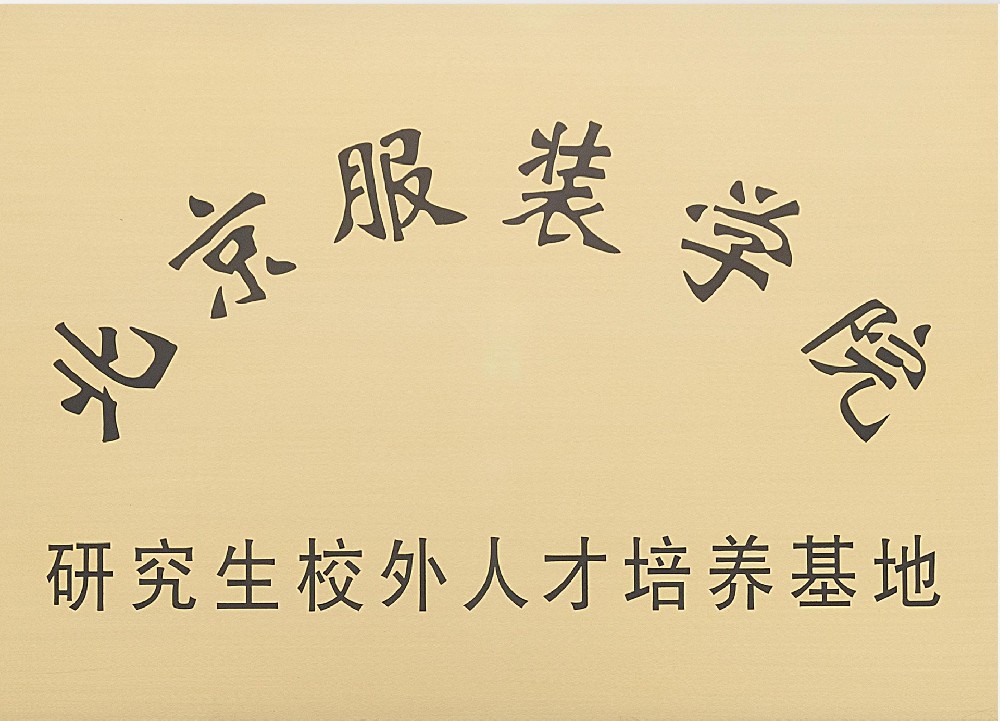 北京服装学院
研究生校外人才培养基地